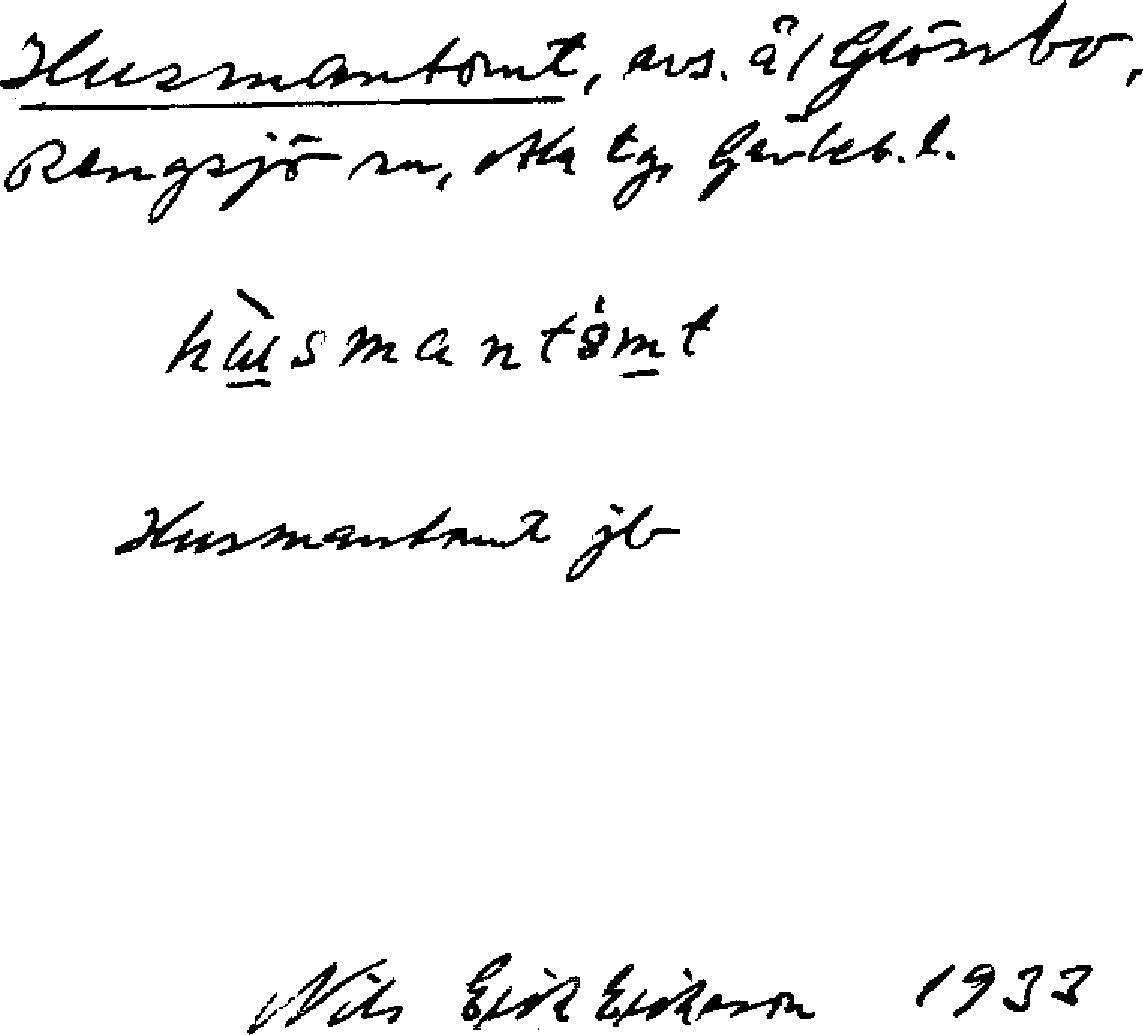 Husmantomt, avs. å/ Glössbo,
Rengsjö sn, Ala tg, Gävleb. l.
hùsmantömt
Husmantomt jb
Nils Erik Eriksson 1933